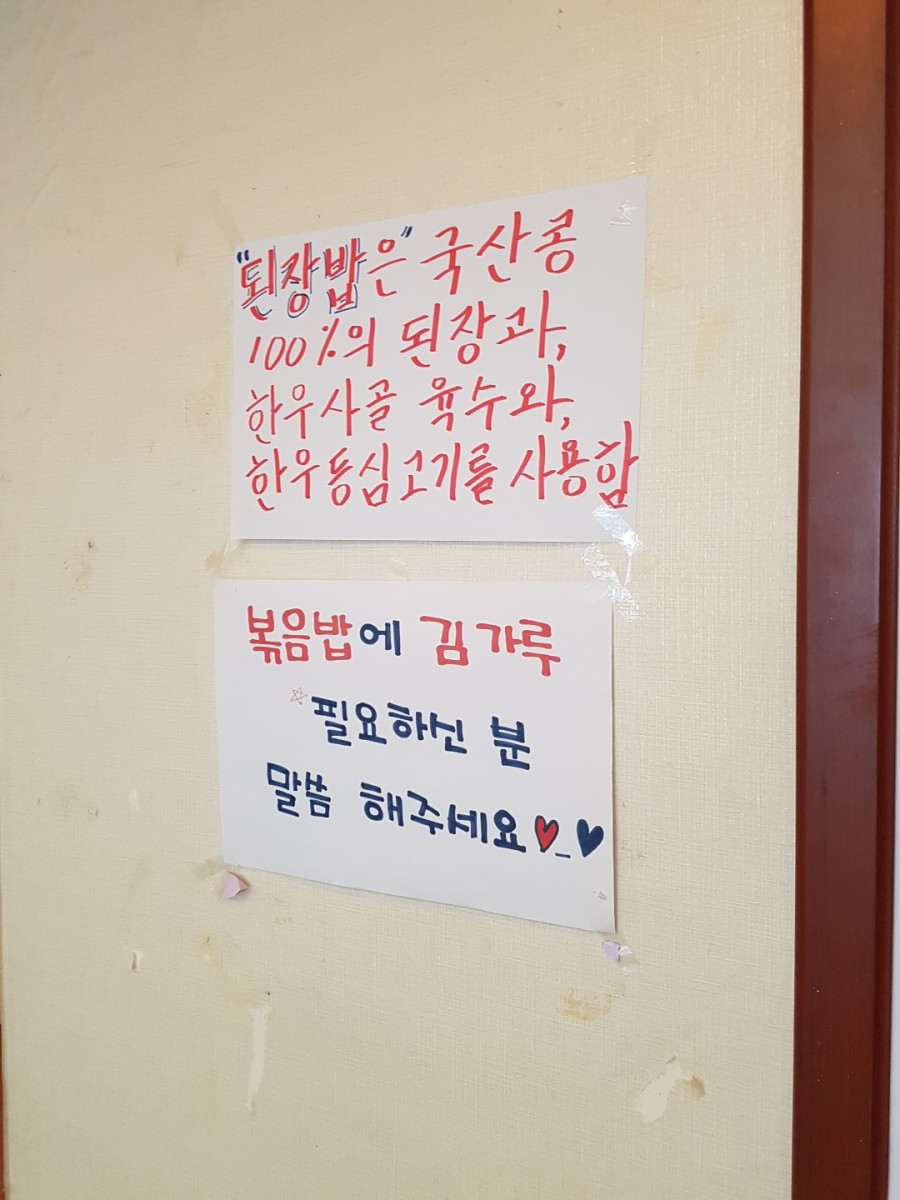 "된장밥은" 국산콩
100%의 된장과,
한우사골 육수와,
한우등심고기를 사용함
볶음밥에 김가루
필요하신 분
말씀 해주세요